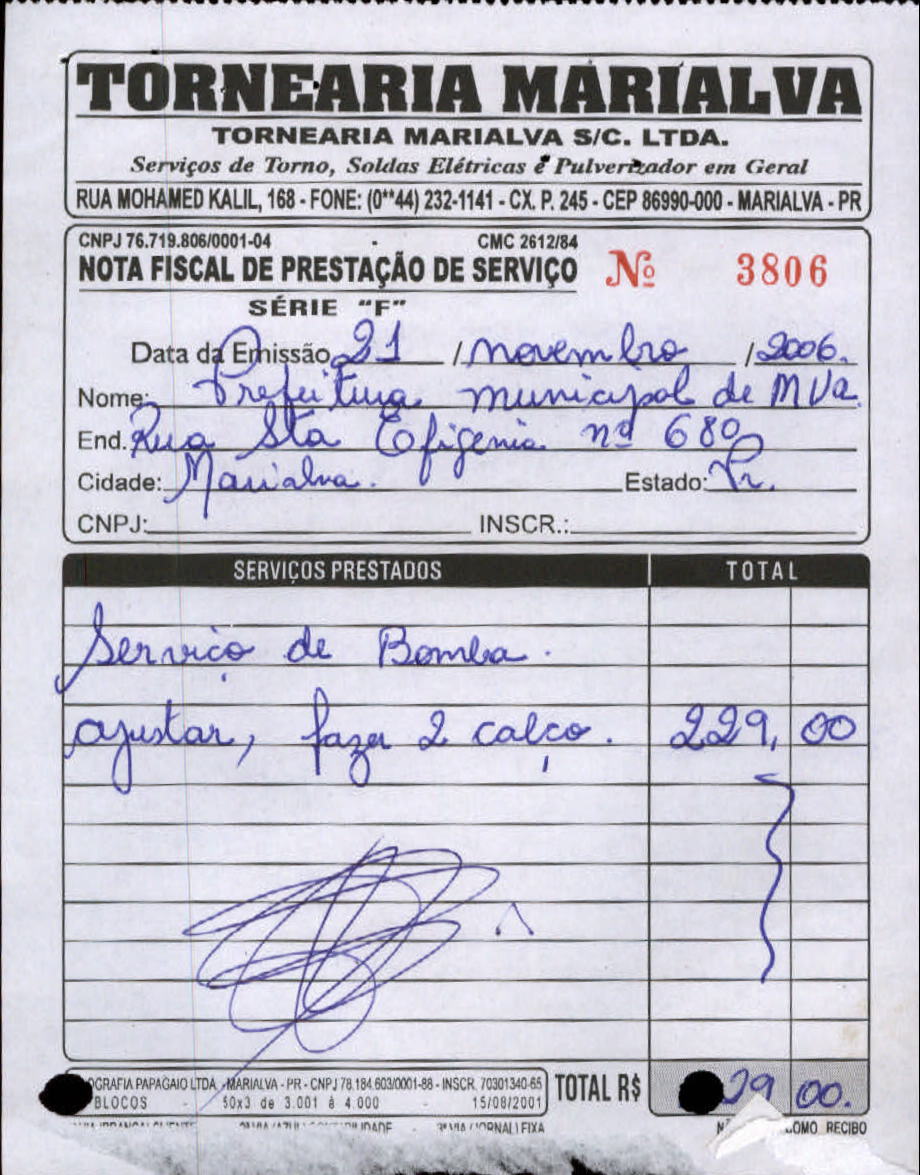 TORNEARIA MARIALVA
TORNEARIA MARIALVA S/C. LTDA.
Serviços de Torno, Soldas Elétricas e Pulverizador em Geral
RUA MOHAMED KALIL, 168 - FONE: (0**44) 232-1141 - CX. P. 245 - CEP 86990-000 - MARIALVA - PR
CNPJ 76.719.806/0001-04 - CMC 2612/84
NOTA FISCAL DE PRESTAÇÃO DE SERVIÇO Nº 3806
SÉRIE "F"
Data da Emissão 21 / novembro / 2006.
Nome: Prefeitura municipal de MVa
End. Rua Sta Efigenia nº 680
Cidade: Marialva. Estado: Pr.
CNPJ: INSCR.:
SERVIÇOS PRESTADOS TOTAL
Serviço de Bomba.
ajustar, fazer 2 calço. 229,00
OGRAFIA PAPAGAIO LTDA. - MARIALVA - PR - CNPJ 78.184.603/0001-88 - INSCR. 70301340-65
BLOCOS - 50x3 de 3.001 à 4.000 - 15/08/2001
TOTAL R$ 29 00.
COMO RECIBO